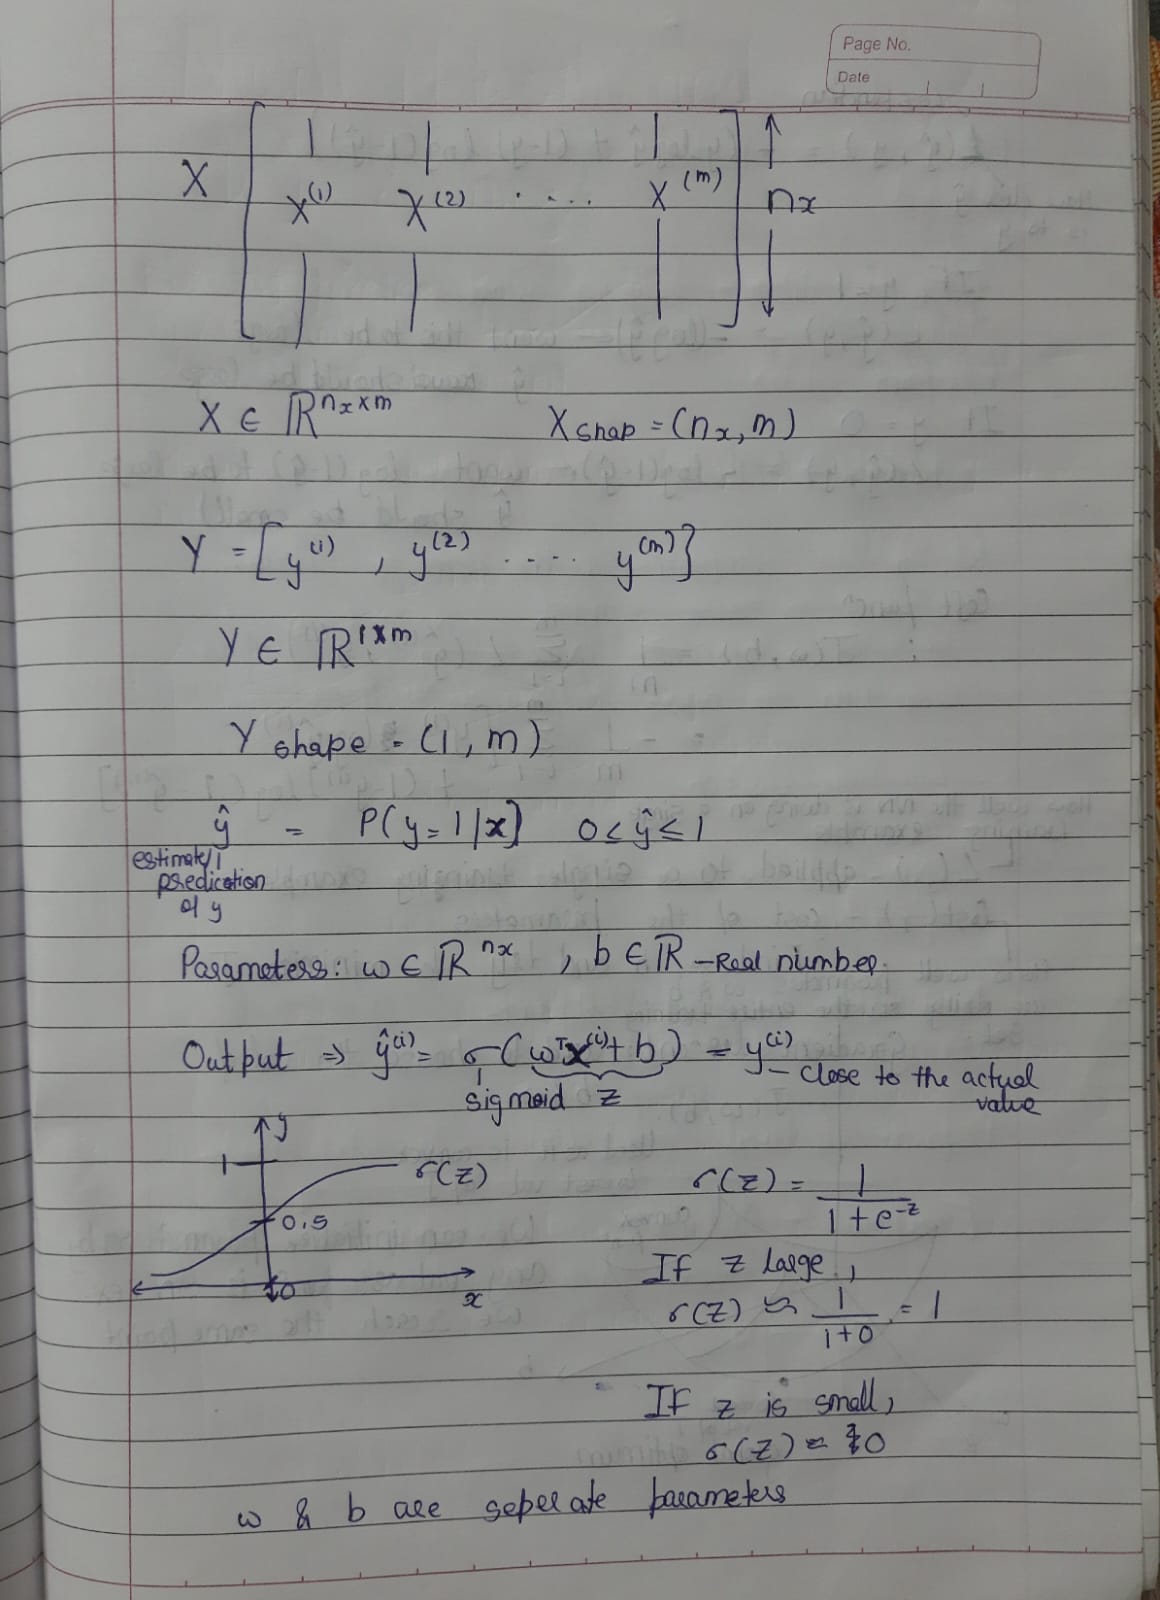 Page No.
Date
X [ X^(1) X^(2) . . . . X^(m) ] nx
X ∈ ℝ^(nx×m) X shap = (nx, m)
Y = [y^(1) , y^(2) . . . . y^(m)]
Y ∈ ℝ^(1×m)
Y shape = (1, m)
ŷ = P(y=1/x) 0 ≤ ŷ ≤ 1
estimate/
predication
of y
Parameters: ω ∈ ℝ^nx , b ∈ ℝ – Real number.
Output ⇒ ŷ^(i) = σ(ω^T x^(i) + b) = y^(i)
– close to the actual
value
sigmoid z
y
1
σ(z)
0.5
0
x
σ(z) = 1 / (1 + e^-z)
If z large,
σ(z) ≈ 1 / (1+0) = 1
If z is small,
σ(z) ≈ 0
ω & b are seperate parameters